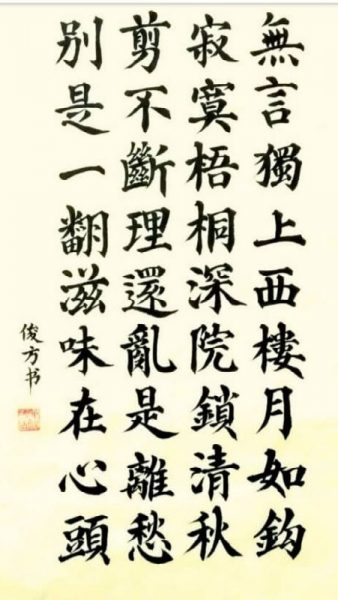 無言獨上西樓月如鈎
寂寞梧桐深院鎖清秋
剪不斷理還亂是離愁
别是一翻滋味在心頭
俊方书